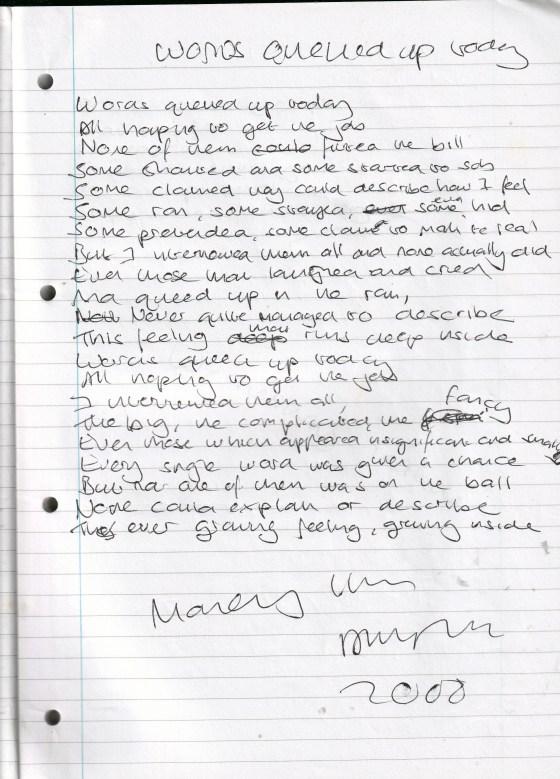 Words queued up today
Words queued up today
All hoping to get the job
None of them could fitted the bill
Some shouted and some started to sob
Some claimed they could describe how I feel
Some ran, some strolled, ever some even hid
Some pretended, some claimed to make to real
But I interviewed them all and none actually did
Even those that laughed and cried
And queed up in the rain,
Never quite managed to describe
This feeling deep that runs deep inside
Words queed up today
All hoping to get the job
I interviewed them all,
The big, the complicated, the fancy
Even those which appeared insignificant and small
Every single word was given a chance
But not one of them was on the ball
None could explain or describe
This ever growing feeling, growing inside
2008